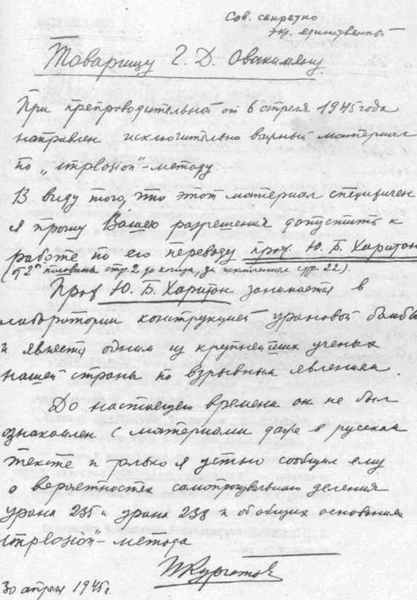 Сов. секретно
экз. единственный
Товарищу Г. Д. Овакимяну.
При препроводительной от 6 апреля 1945 года
направлен исключительно важный материал
по „implosion"-методу
В виду того, что этот материал специфичен
я прошу Вашего разрешения допустить к
работе по его переводу проф. Ю. Б. Харитон
(от 2й половины стр. 2 до конца, за исключением стр. 22).
Проф Ю. Б. Харитон занимается в
лаборатории конструкцией урановой бомбы
и является одним из крупнейших ученых
нашей страны по взрывным явлениям.
До настоящего времени он не был
ознакомлен с материалами даже в русском
тексте и только я устно сообщил ему
о вероятностях самопроизвольного деления
урана 235 и урана 238 и об общих основаниях
implosion"-метода
И Курчатов
30 апреля 1945 г.